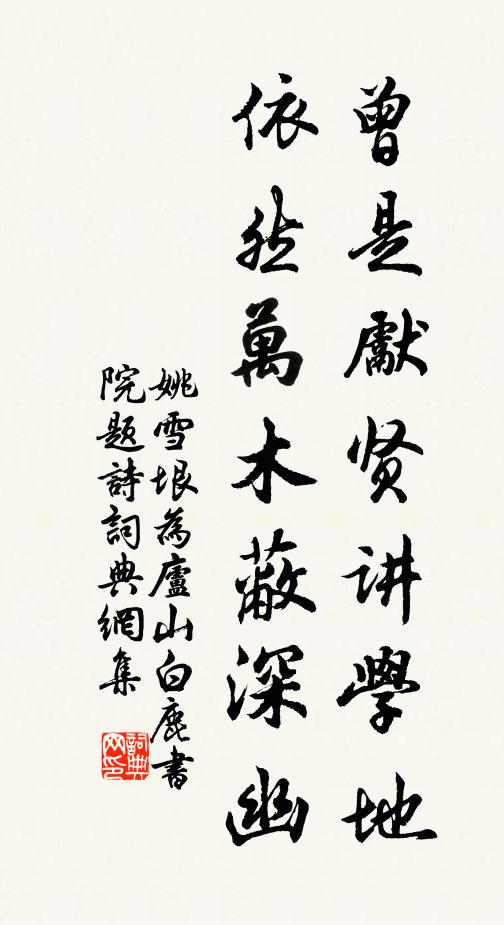 曾是獻贤讲學地
依然萬木蔽深幽
姚雪垠為廬山白鹿書
院題詩詞典網集
詞典
网印